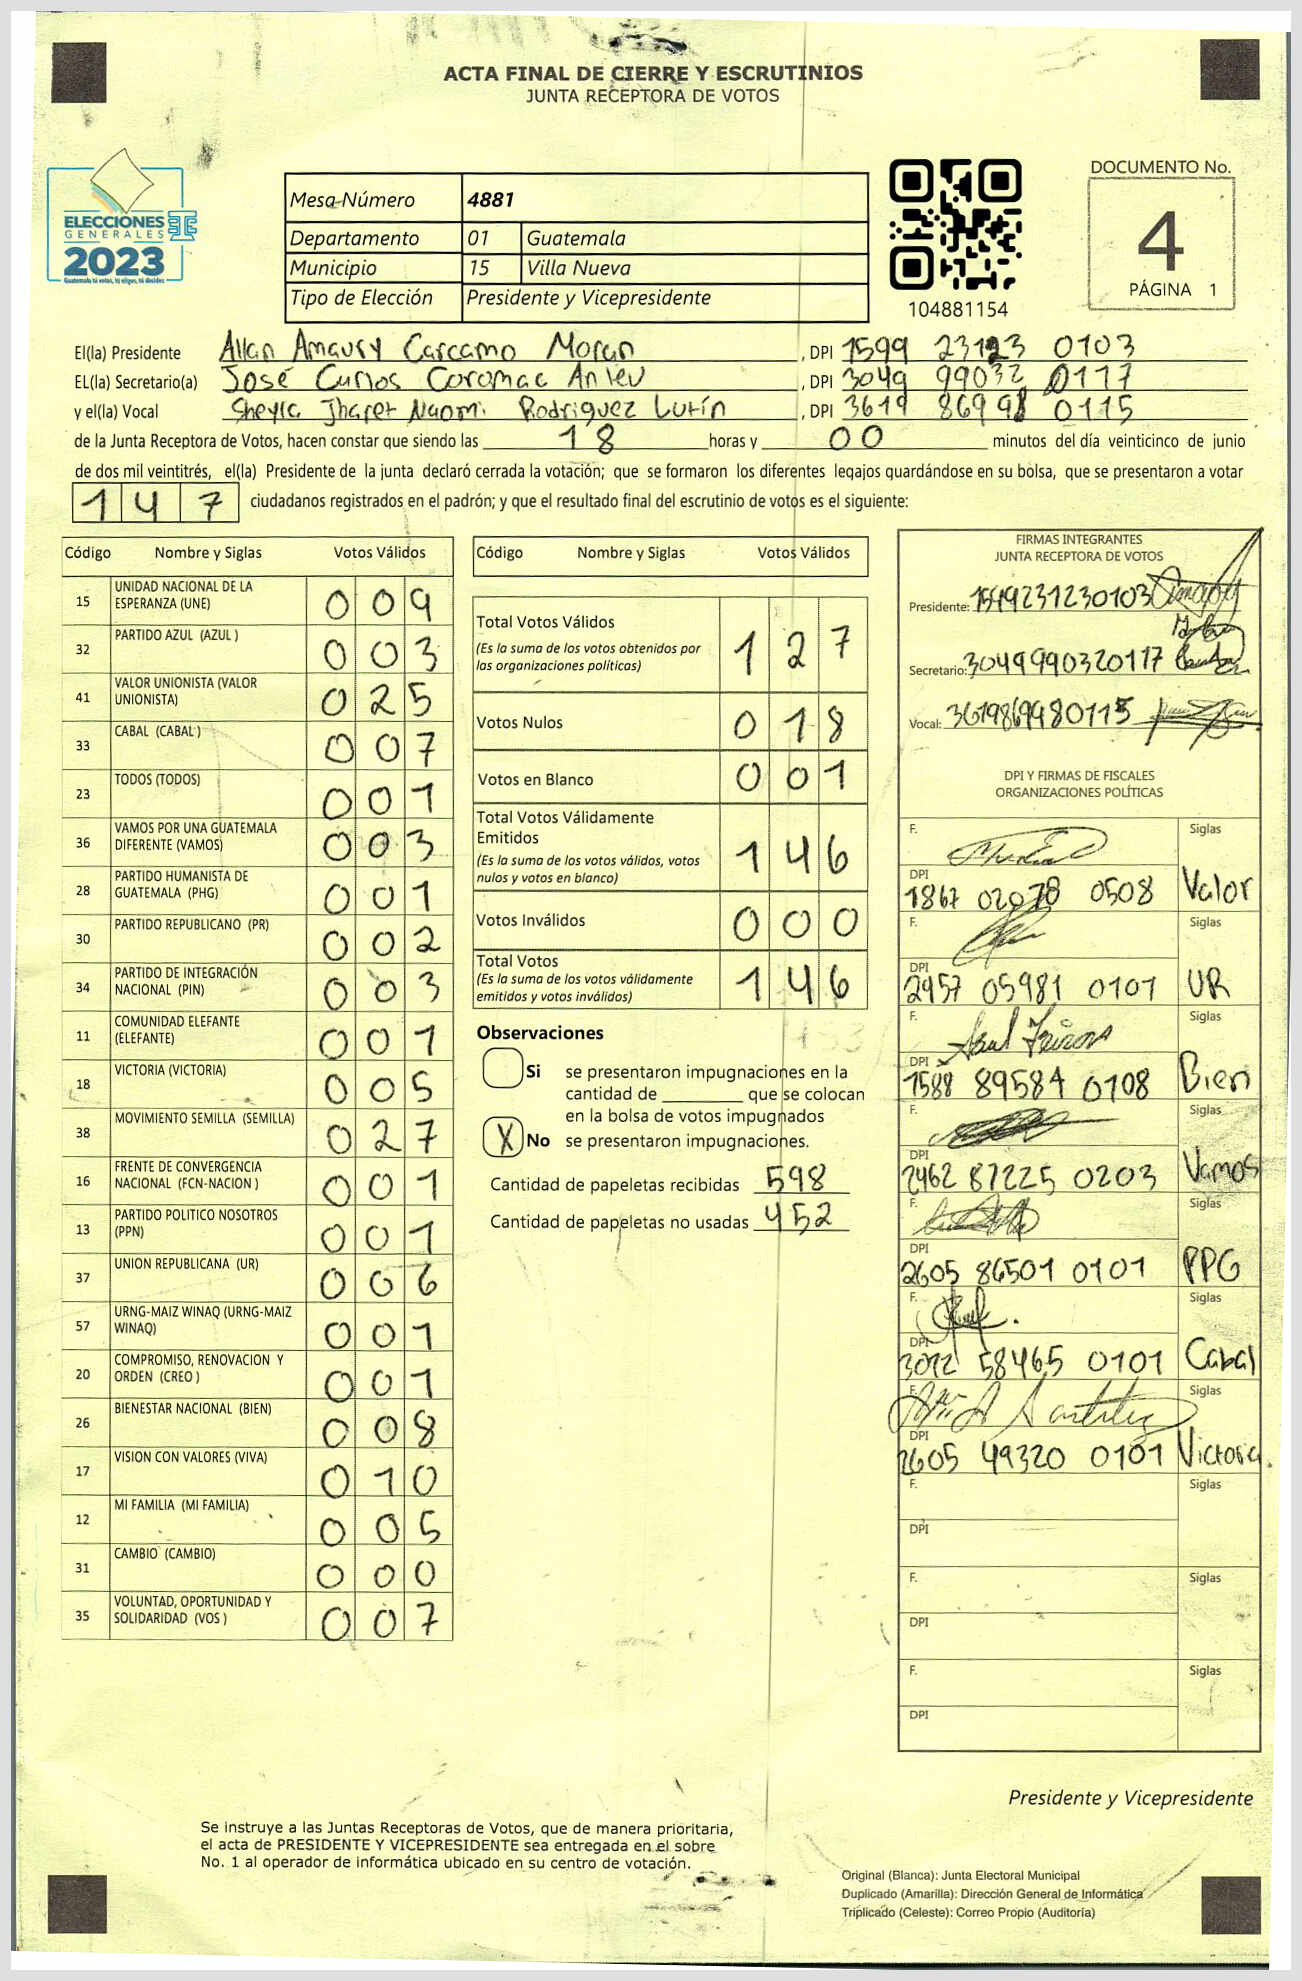 ACTA FINAL DE CIERRE Y ESCRUTINIOS
JUNTA RECEPTORA DE VOTOS
ELECCIONES
GENERALES
2023
Guatemala tú votas, tú eliges, tú decides
Mesa Número 4881
Departamento 01 Guatemala
Municipio 15 Villa Nueva
Tipo de Elección Presidente y Vicepresidente
104881154
DOCUMENTO No.
4
PÁGINA 1
El(la) Presidente Allan Amaury Carcamo Moran , DPI 1599 23123 0103
EL(la) Secretario(a) José Carlos Coromac , DPI 3049 99032 0117
y el(la) Vocal Sheyla Jharet Naomi Rodriguez , DPI 3619 86998 0115
de la Junta Receptora de Votos, hacen constar que siendo las 18 horas y 00 minutos del día veinticinco de junio
de dos mil veintitrés, el(la) Presidente de la junta declaró cerrada la votación; que se formaron los diferentes legajos guardándose en su bolsa, que se presentaron a votar
147 ciudadanos registrados en el padrón; y que el resultado final del escrutinio de votos es el siguiente:
Código Nombre y Siglas Votos Válidos
15 UNIDAD NACIONAL DE LA
ESPERANZA (UNE) 009
32 PARTIDO AZUL (AZUL ) 003
41 VALOR UNIONISTA (VALOR
UNIONISTA) 025
33 CABAL (CABAL ) 007
23 TODOS (TODOS) 001
36 VAMOS POR UNA GUATEMALA
DIFERENTE (VAMOS) 003
28 PARTIDO HUMANISTA DE
GUATEMALA (PHG) 001
30 PARTIDO REPUBLICANO (PR) 002
34 PARTIDO DE INTEGRACIÓN
NACIONAL (PIN) 003
11 COMUNIDAD ELEFANTE
(ELEFANTE) 001
18 VICTORIA (VICTORIA) 005
38 MOVIMIENTO SEMILLA (SEMILLA) 027
16 FRENTE DE CONVERGENCIA
NACIONAL (FCN-NACION ) 001
13 PARTIDO POLITICO NOSOTROS
(PPN) 001
37 UNION REPUBLICANA (UR) 006
57 URNG-MAIZ WINAQ (URNG-MAIZ
WINAQ) 001
20 COMPROMISO, RENOVACION Y
ORDEN (CREO ) 001
26 BIENESTAR NACIONAL (BIEN) 008
17 VISION CON VALORES (VIVA) 010
12 MI FAMILIA (MI FAMILIA) 005
31 CAMBIO (CAMBIO) 000
35 VOLUNTAD, OPORTUNIDAD Y
SOLIDARIDAD (VOS ) 007
Código Nombre y Siglas Votos Válidos
Total Votos Válidos 127
(Es la suma de los votos obtenidos por
las organizaciones políticas)
Votos Nulos 018
Votos en Blanco 001
Total Votos Válidamente
Emitidos 146
(Es la suma de los votos válidos, votos
nulos y votos en blanco)
Votos Inválidos 000
Total Votos 146
(Es la suma de los votos válidamente
emitidos y votos inválidos)
Observaciones
Si se presentaron impugnaciones en la
cantidad de ________ que se colocan
en la bolsa de votos impugnados
X No se presentaron impugnaciones.
Cantidad de papeletas recibidas 598
Cantidad de papeletas no usadas 452
FIRMAS INTEGRANTES
JUNTA RECEPTORA DE VOTOS
Presidente: 1599231230103
Secretario: 3049990320117
Vocal: 3619869980115
DPI Y FIRMAS DE FISCALES
ORGANIZACIONES POLÍTICAS
F. Siglas
DPI
1867 02078 0508 Valor
F. Siglas
DPI
2957 05981 0101 UR
F. Siglas
DPI
1588 89584 0108 Bien
F. Siglas
DPI
2462 87225 0203 Vamos
F. Siglas
DPI
2605 86501 0101 PPG
F. Siglas
DPI
3012 58465 0101 Cabal
F. Siglas
DPI
2605 49320 0101 Victoria.
F. Siglas
DPI
F. Siglas
DPI
F. Siglas
DPI
Presidente y Vicepresidente
Se instruye a las Juntas Receptoras de Votos, que de manera prioritaria,
el acta de PRESIDENTE Y VICEPRESIDENTE sea entregada en el sobre
No. 1 al operador de informática ubicado en su centro de votación.
Original (Blanca): Junta Electoral Municipal
Duplicado (Amarilla): Dirección General de Informática
Triplicado (Celeste): Correo Propio (Auditoría)